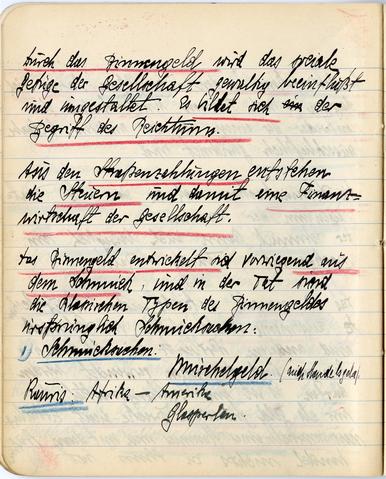 Durch das Binnengeld wird das soziale
Gefüge der Gesellschaft gewaltig beeinflußt
und umgestaltet. Es bildet sich der
Begriff des Reichtums.
Aus den Strafenzahlungen entstehen
die Steuern und damit eine Finanz-
wirtschaft der Gesellschaft.
Das Binnengeld entwickelt sich vorwiegend aus
dem Schmuck, und in der Tat sind
die klassischen Typen des Binnengeldes
ursprünglich Schmucksachen:
1) Schmucksachen:
Muschelgeld. (auch
Kauris: Afrika — Amerika
Glasperlen.